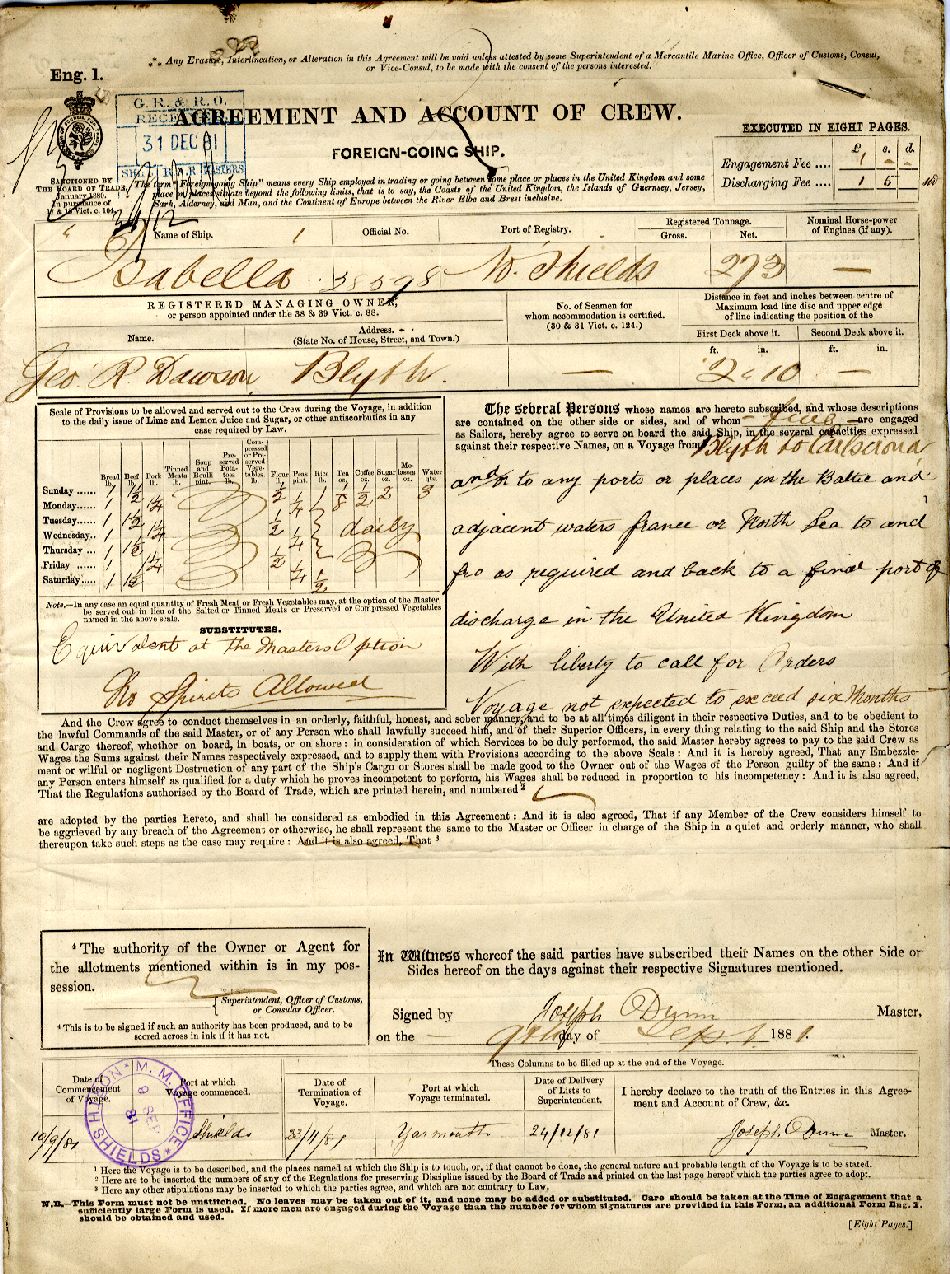 ∴ Any Erasure, Interlineation, or Alteration in this Agreement will be void unless attested by some Superintendent of a Mercantile Marine Office, Officer of Customs, Consul,
or Vice-Consul, to be made with the consent of the persons interested.
Eng. 1.
G. R. & R. O.
31 DEC 81
AGREEMENT AND ACCOUNT OF CREW.
FOREIGN-GOING SHIP.
EXECUTED IN EIGHT PAGES.
£ s. d.
Engagement Fee ....
Discharging Fee .... 1 5
SANCTIONED BY
THE BOARD OF TRADE,
24/12
The term "Foreign-going Ship" means every Ship employed in trading or going between some place or places in the United Kingdom and some
place or places situate beyond the following limits, that is to say, the Coasts of the United Kingdom, the Islands of Guernsey, Jersey,
Sark, Alderney, and Man, and the Continent of Europe between the River Elbe and Brest inclusive.
Name of Ship. Official No. Port of Registry. Registered Tonnage. Gross. Net. Nominal Horse-power of Engines (if any).
Isabella N. Shields 273 —
REGISTERED MANAGING OWNER,
or person appointed under the 38 & 39 Vict. c. 88.
Name. Address. (State No. of House, Street, and Town.)
No. of Seamen for
whom accommodation is certified.
(30 & 31 Vict. c. 124.)
Distance in feet and inches between centre of
Maximum load line disc and upper edge
of line indicating the position of the
First Deck above it. Second Deck above it.
ft. in. ft. in.
Geo R Dawson Blyth. — 2 " 10 —
Scale of Provisions to be allowed and served out to the Crew during the Voyage, in addition
to the daily issue of Lime and Lemon Juice and Sugar, or other antiscorbutics in any
case required by Law.
Sunday
Monday
Tuesday
Wednesday
Thursday
Friday
Saturday
daily
Note.—In any case an equal quantity of Fresh Meat or Fresh Vegetables may, at the option of the Master
be served out in lieu of the Salted or Tinned Meats or Preserved or Compressed Vegetables
named in the above scale.
SUBSTITUTES.
Equivalent at the Masters Option
No Spirits Allowed
The several Persons whose names are hereto subscribed, and whose descriptions
are contained on the other side or sides, and of whom are engaged
as Sailors, hereby agree to serve on board the said Ship, in the several capacities expressed
against their respective Names, on a Voyage from Blyth to
and/or to any ports or places in the Baltic and
adjacent waters France or North Sea to and
fro as required and back to a final port of
discharge in the United Kingdom
With liberty to call for Orders
Voyage not expected to exceed six Months
And the Crew agree to conduct themselves in an orderly, faithful, honest, and sober manner, and to be at all times diligent in their respective Duties, and to be obedient to
the lawful Commands of the said Master, or of any Person who shall lawfully succeed him, and of their Superior Officers, in every thing relating to the said Ship and the Stores
and Cargo thereof, whether on board, in boats, or on shore: in consideration of which Services to be duly performed, the said Master hereby agrees to pay to the said Crew as
Wages the Sums against their Names respectively expressed, and to supply them with Provisions according to the above Scale: And it is hereby agreed, That any Embezzle-
ment or wilful or negligent Destruction of any part of the Ship's Cargo or Stores shall be made good to the Owner out of the Wages of the Person guilty of the same: And if
any Person enters himself as qualified for a duty which he proves incompetent to perform, his Wages shall be reduced in proportion to his incompetency: And it is also agreed,
That the Regulations authorised by the Board of Trade, which are printed herein, and numbered ²
are adopted by the parties hereto, and shall be considered as embodied in this Agreement: And it is also agreed, That if any Member of the Crew considers himself to
be aggrieved by any breach of the Agreement or otherwise, he shall represent the same to the Master or Officer in charge of the Ship in a quiet and orderly manner, who shall
thereupon take such steps as the case may require: And it is also agreed, That ³
⁴ The authority of the Owner or Agent for
the allotments mentioned within is in my pos-
session.
Superintendent, Officer of Customs,
or Consular Officer.
⁴ This is to be signed if such an authority has been produced, and to be
scored across in ink if it has not.
In Witness whereof the said parties have subscribed their Names on the other Side or
Sides hereof on the days against their respective Signatures mentioned.
Signed by Joseph Dunn Master.
on the 9th day of Sept 1881.
These Columns to be filled up at the end of the Voyage.
Date of Commencement of Voyage. Port at which Voyage commenced. Date of Termination of Voyage. Port at which Voyage terminated. Date of Delivery of Lists to Superintendent. I hereby declare to the truth of the Entries in this Agree-
ment and Account of Crew, &c.
M. M. OFFICE
9 SEP 81
SHIELDS
10/9/81 Shields Yarmouth 24/12/81 Joseph Dunn Master.
¹ Here the Voyage is to be described, and the places named at which the Ship is to touch, or, if that cannot be done, the general nature and probable length of the Voyage is to be stated.
² Here are to be inserted the numbers of any of the Regulations for preserving Discipline issued by the Board of Trade and printed on the last page hereof which the parties agree to adopt.
³ Here any other stipulations may be inserted to which the parties agree, and which are not contrary to Law.
N.B.—This Form must not be unstitched. No leaves may be taken out of it, and none may be added or substituted. Care should be taken at the Time of Engagement that a
sufficiently large Form is used. If more men are engaged during the Voyage than the number for whom signatures are provided in this Form, an additional Form Eng. 1.
should be obtained and used.
[Eight Pages.]